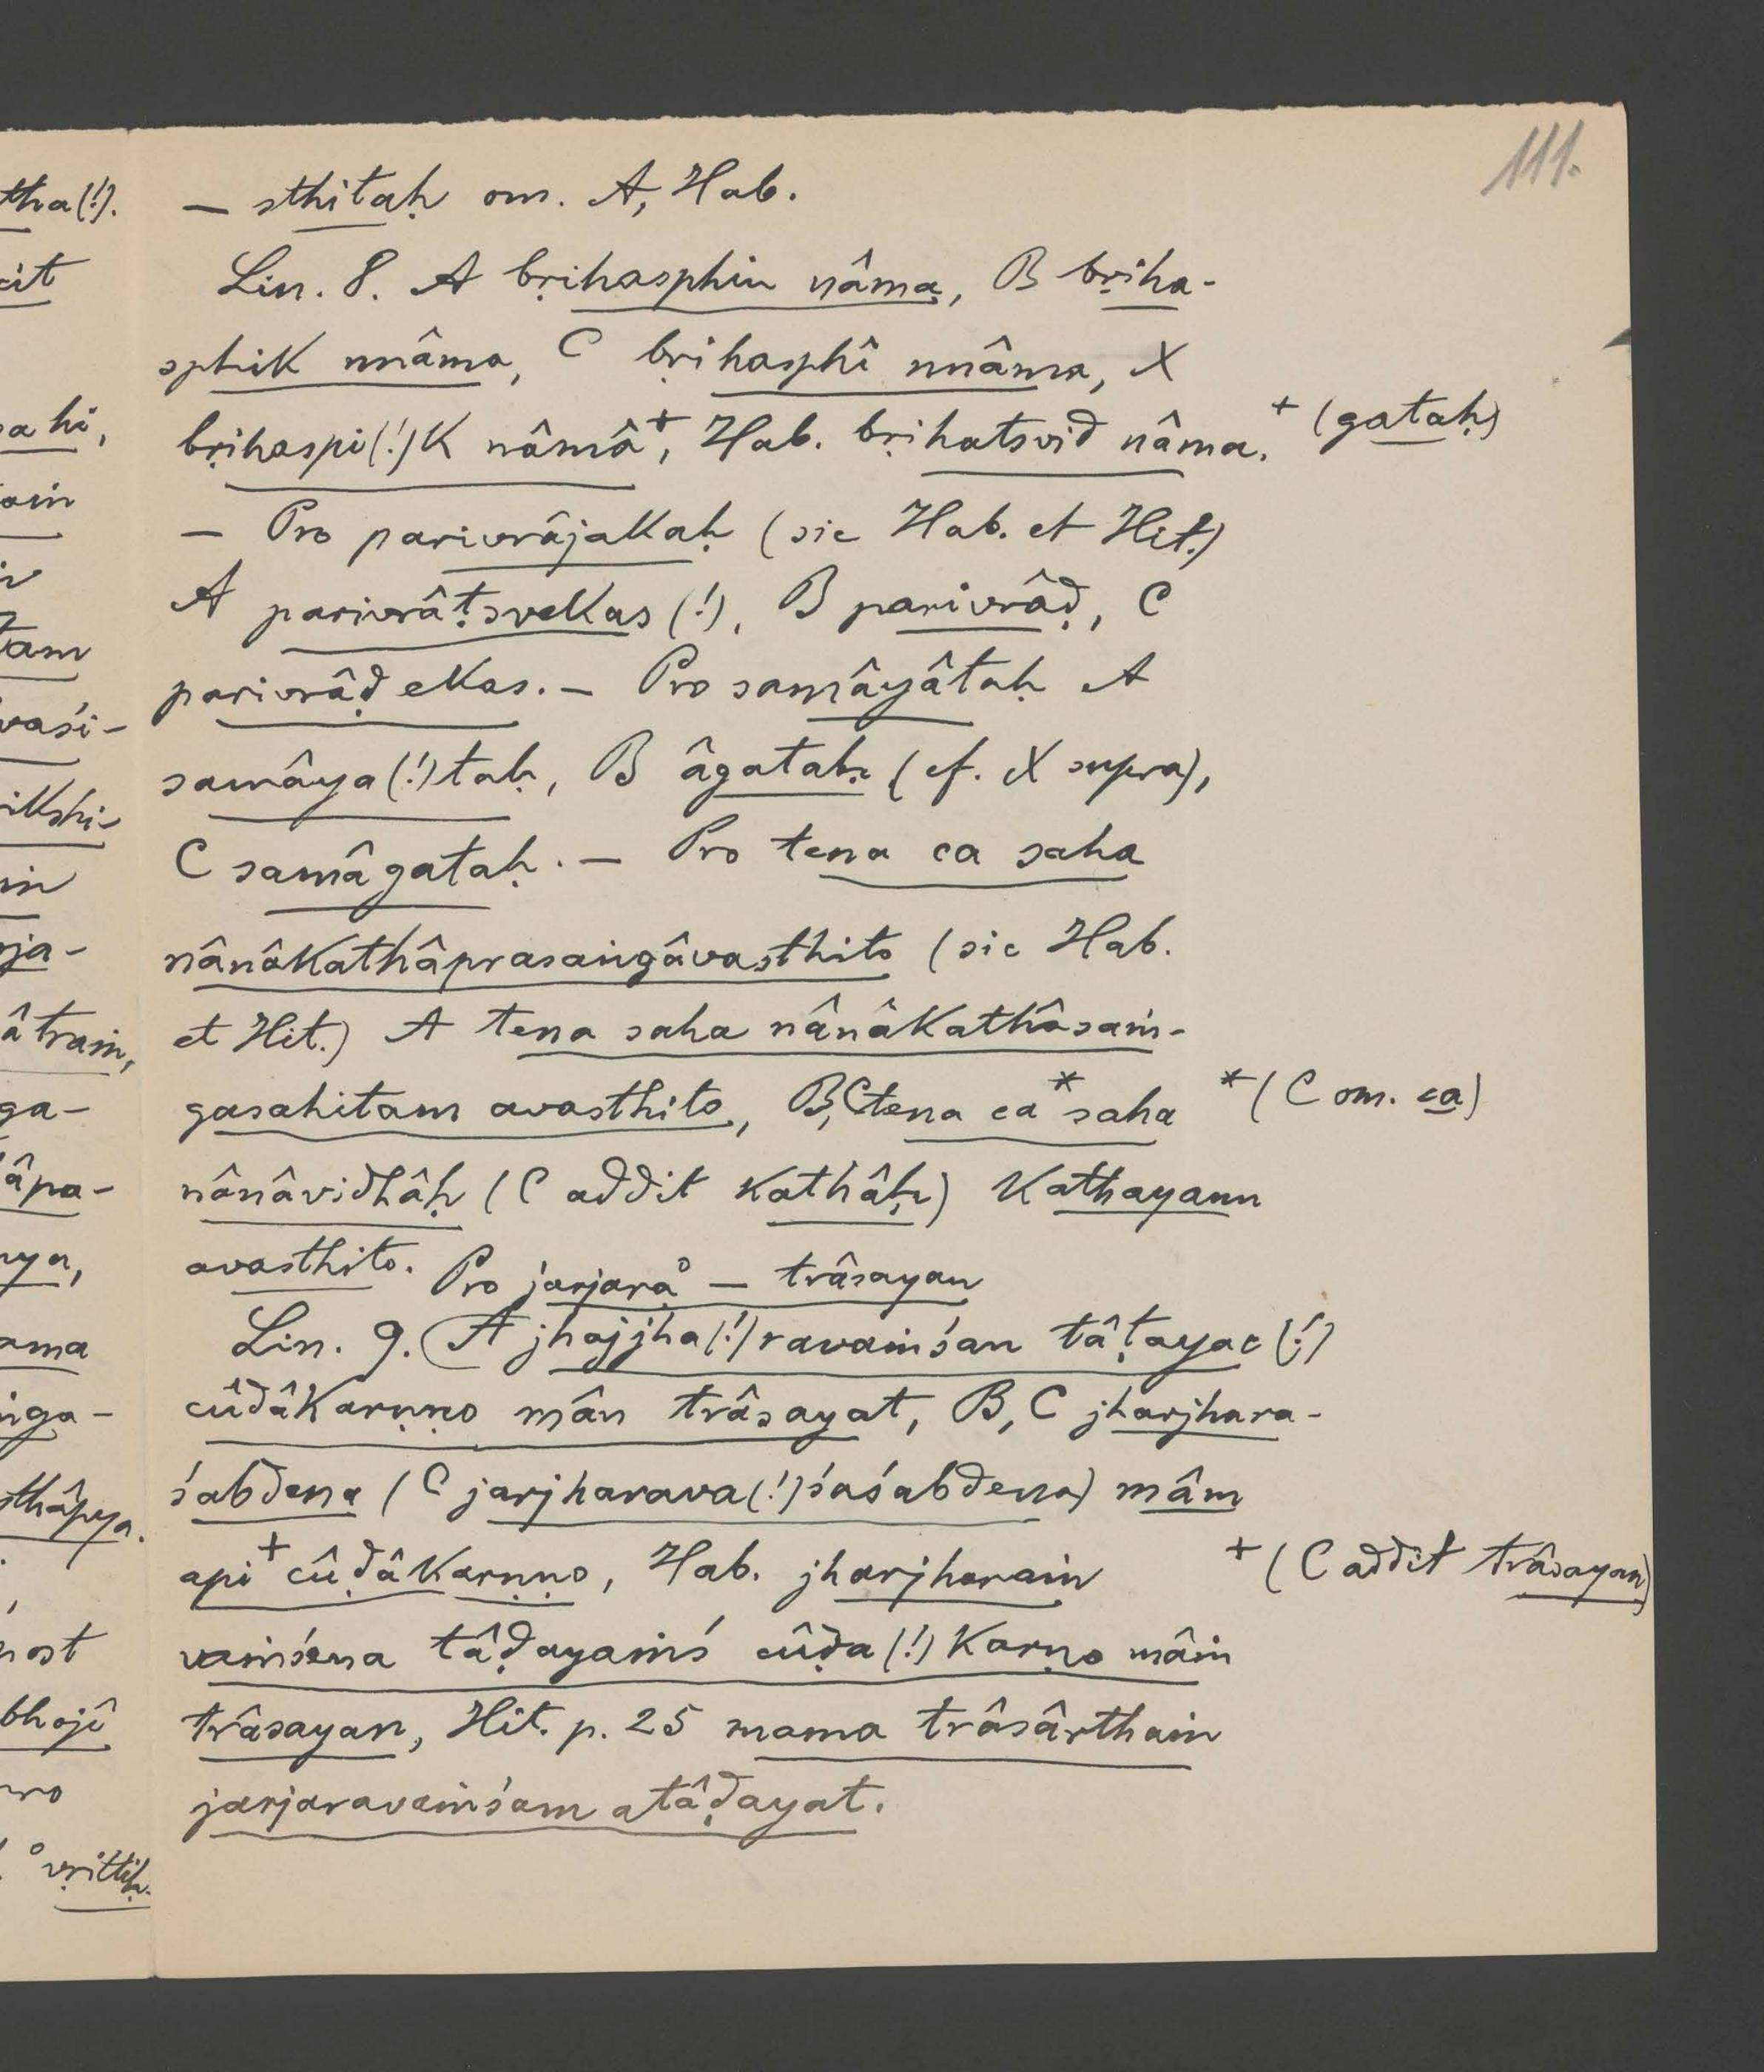 111.
— sthitaḥ om. A, Hab.
Lin. 8. A bṛihasphin nâma, B bṛiha-
sphik nnâma, C bṛihasphî nnâma, X
bṛihaspi(!)k nâmâ+, Hab. bṛihatsvid nâma. + (gataḥ)
— Pro parivrâjakaḥ (sic Hab. et Hit.)
A parivrâṭsvekas (!), B parivrâḍ, C
parivrâḍ ekas. — Pro samâyâtaḥ A
samâya(!)taḥ, B âgataḥ (cf. X supra),
C samâgataḥ. — Pro tena ca saha
nânâkathâprasaṅgâvasthito (sic Hab.
et Hit.) A tena saha nânâkathâsaṁ-
gasahitam avasthito, B, C tena ca* saha * (C om. ca)
nânâvidhâḥ (C addit kathâḥ) kathayann
avasthito. Pro jarjara° — trâsayan
Lin. 9. A jhajjha(!)ravaṁśan tâṭayac (!)
cûdâkarṇṇo mân trâsayat, B, C jharjhara-
śabdena (C jarjharava(!)śaśabdena) mâm
api+ cûḍâkarṇṇo, Hab. jharjharaṁ + (C addit trâsayan)
vaṁśena tâḍayaṁś cûḍa(!)karṇo mâṁ
trâsayan, Hit. p. 25 mama trâsârthaṁ
jarjaravaṁśam atâḍayat.
tha(!).
cit
ahi,
tam
vaśi-
ikshi-
ja-
âtraṁ,
ga-
âpa-
ya,
ama
ga-
sthâpya.
bhojî
°vṛittiḥ.